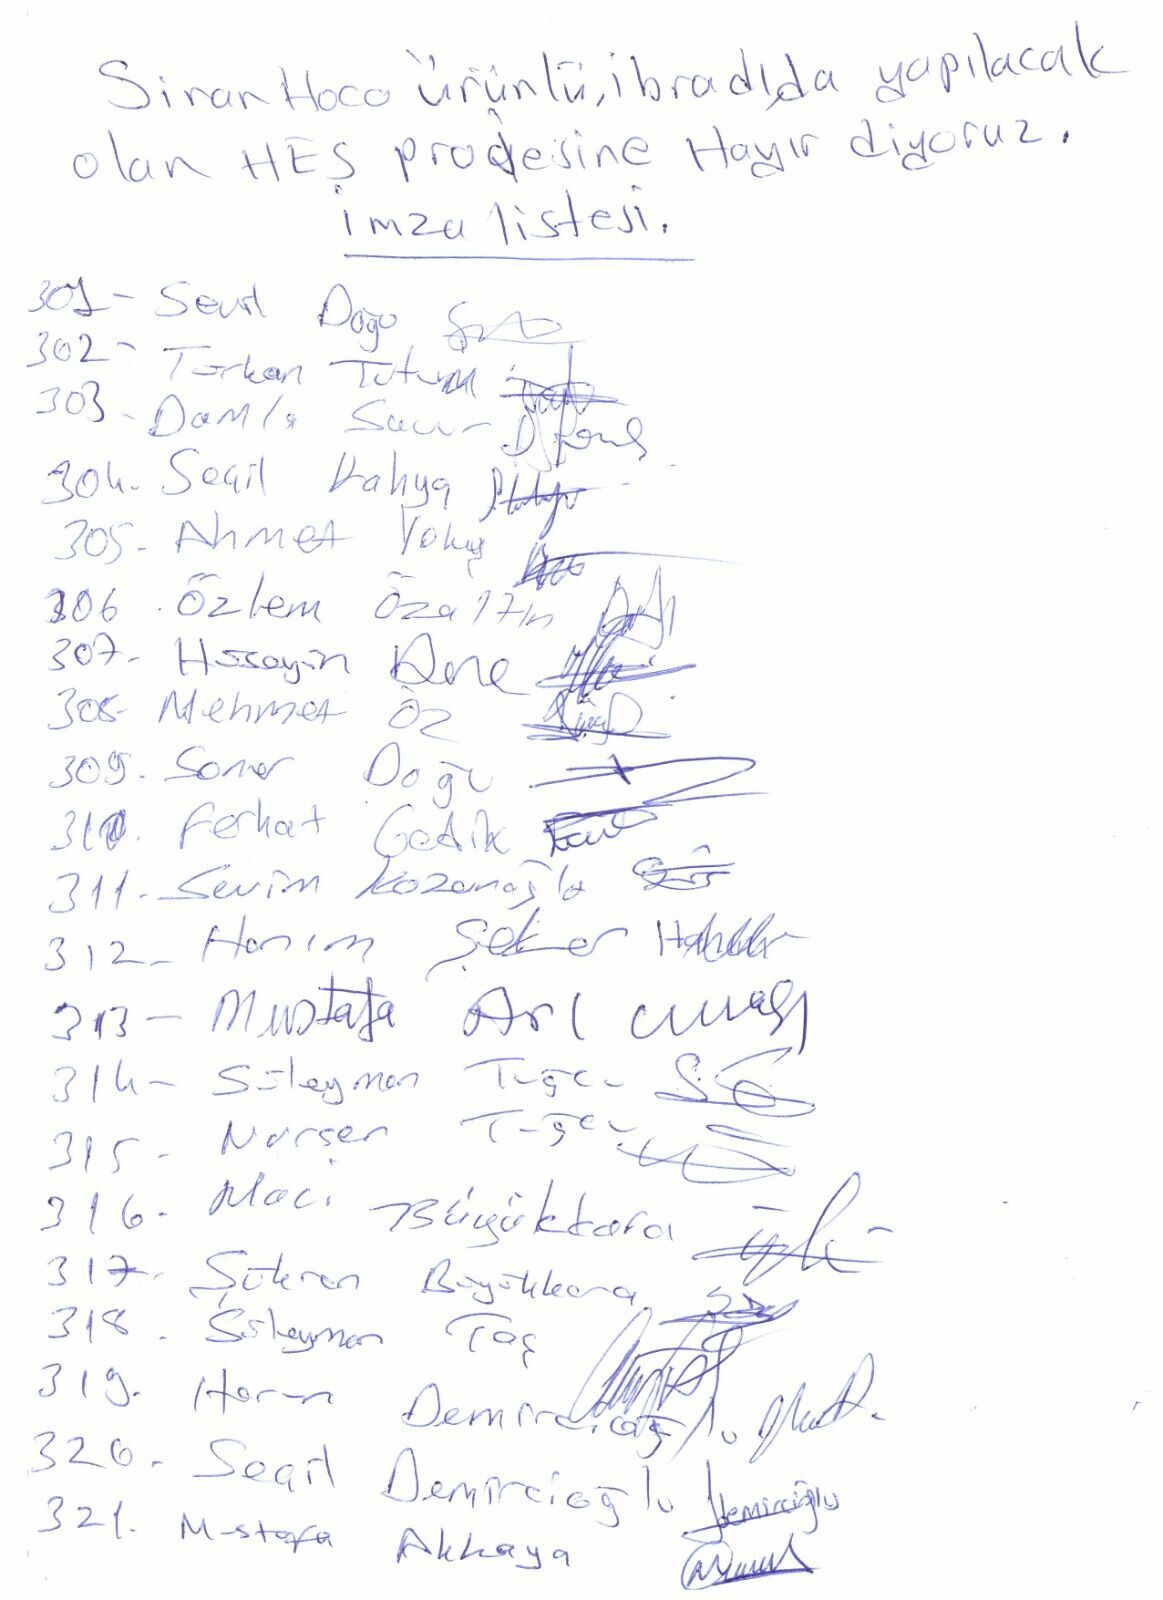 Sinan Hoca Ürünlü, ibradıda yapılacak
olan HES projesine Hayır diyoruz.
imza listesi.
301- Sevil Doğu
302- Türkan Tutum
303- Damla
304. Seçil Kahya
305- Ahmet Yokuş
306. Özlem Özaltın
307- Hüseyin
308- Mehmet Öz
309. Soner Doğu
310. Ferhat Gedik
311. Sevim Kozanoğlu
312- Hanım Şeker
313- Mustafa Arı
314- Süleyman Tuğcu
315- Nurşen Tuğcu
316. Naci Büyükkara
317- Şükran Büyükkara
318. Süleyman Taş
319. Harun Demircioğlu
320. Seçil Demircioğlu Demircioğlu
321. Mustafa Akkaya